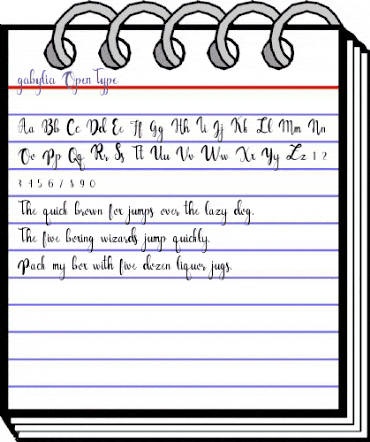 gabylia OpenType
Aa Bb Cc Dd Ee Ff Gg Hh Ii Jj Kk Ll Mm Nn
Oo Pp Qq Rr Ss Tt Uu Vv Ww Xx Yy Zz 1 2
3 4 5 6 7 8 9 0
The quick brown fox jumps over the lazy dog.
The five boxing wizards jump quickly.
Pack my box with five dozen liquor jugs.